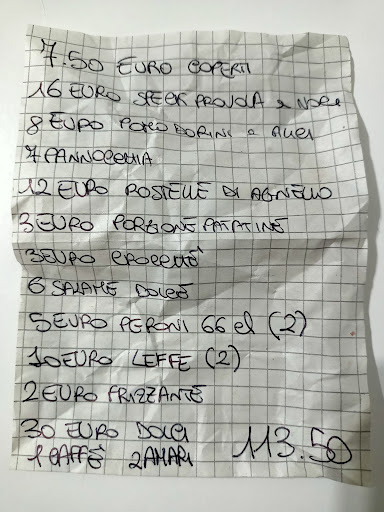 7.50 EURO COPERTI
16 EURO SPECK PROVOLA e NOCI
8 EURO POMODORINI e ALICI
7 PANNOCCHIA
12 EURO ROSTELLE DI AGNELLO
3 EURO PORZIONE PATATINE
3 EURO CROCCHÈ
6 SALAME DOLCE
5 EURO PERONI 66 cl (2)
10 EURO LEFFE (2)
2 EURO FRIZZANTE
30 EURO DOLCI
1 CAFFÈ 2 AMARI 113.50